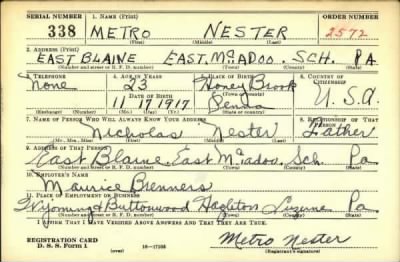 SERIAL NUMBER 1. NAME (Print) ORDER NUMBER
338 METRO NESTER 2572
(First) (Middle) (Last)
2. ADDRESS (Print)
EAST BLAINE EAST McADOO. SCH. PA
(Number and street or R. F. D. number) (Town) (County) (State)
3. TELEPHONE 4. AGE IN YEARS 5. PLACE OF BIRTH 6. COUNTRY OF CITIZENSHIP
None 23 Honey Brook
DATE OF BIRTH (Town or county)
11 17 1917 Penna U.S.A.
(Mo.) (Day) (Yr.) (State or country)
7. NAME OF PERSON WHO WILL ALWAYS KNOW YOUR ADDRESS 8. RELATIONSHIP OF THAT PERSON
Nicholas Nester Father
(Mr., Mrs., Miss) (First) (Middle) (Last)
9. ADDRESS OF THAT PERSON
East Blaine East McAdoo. Sch. Pa
(Number and street or R. F. D. number) (Town) (County) (State)
10. EMPLOYER'S NAME
Maurice Brenners
11. PLACE OF EMPLOYMENT OR BUSINESS
Wyoming & Buttonwood Hazleton Luzerne Pa
(Number and street or R. F. D. number) (Town) (County) (State)
I AFFIRM THAT I HAVE VERIFIED ABOVE ANSWERS AND THAT THEY ARE TRUE.
REGISTRATION CARD
D. S. S. Form 1 (over) 16—17105 Metro Nester